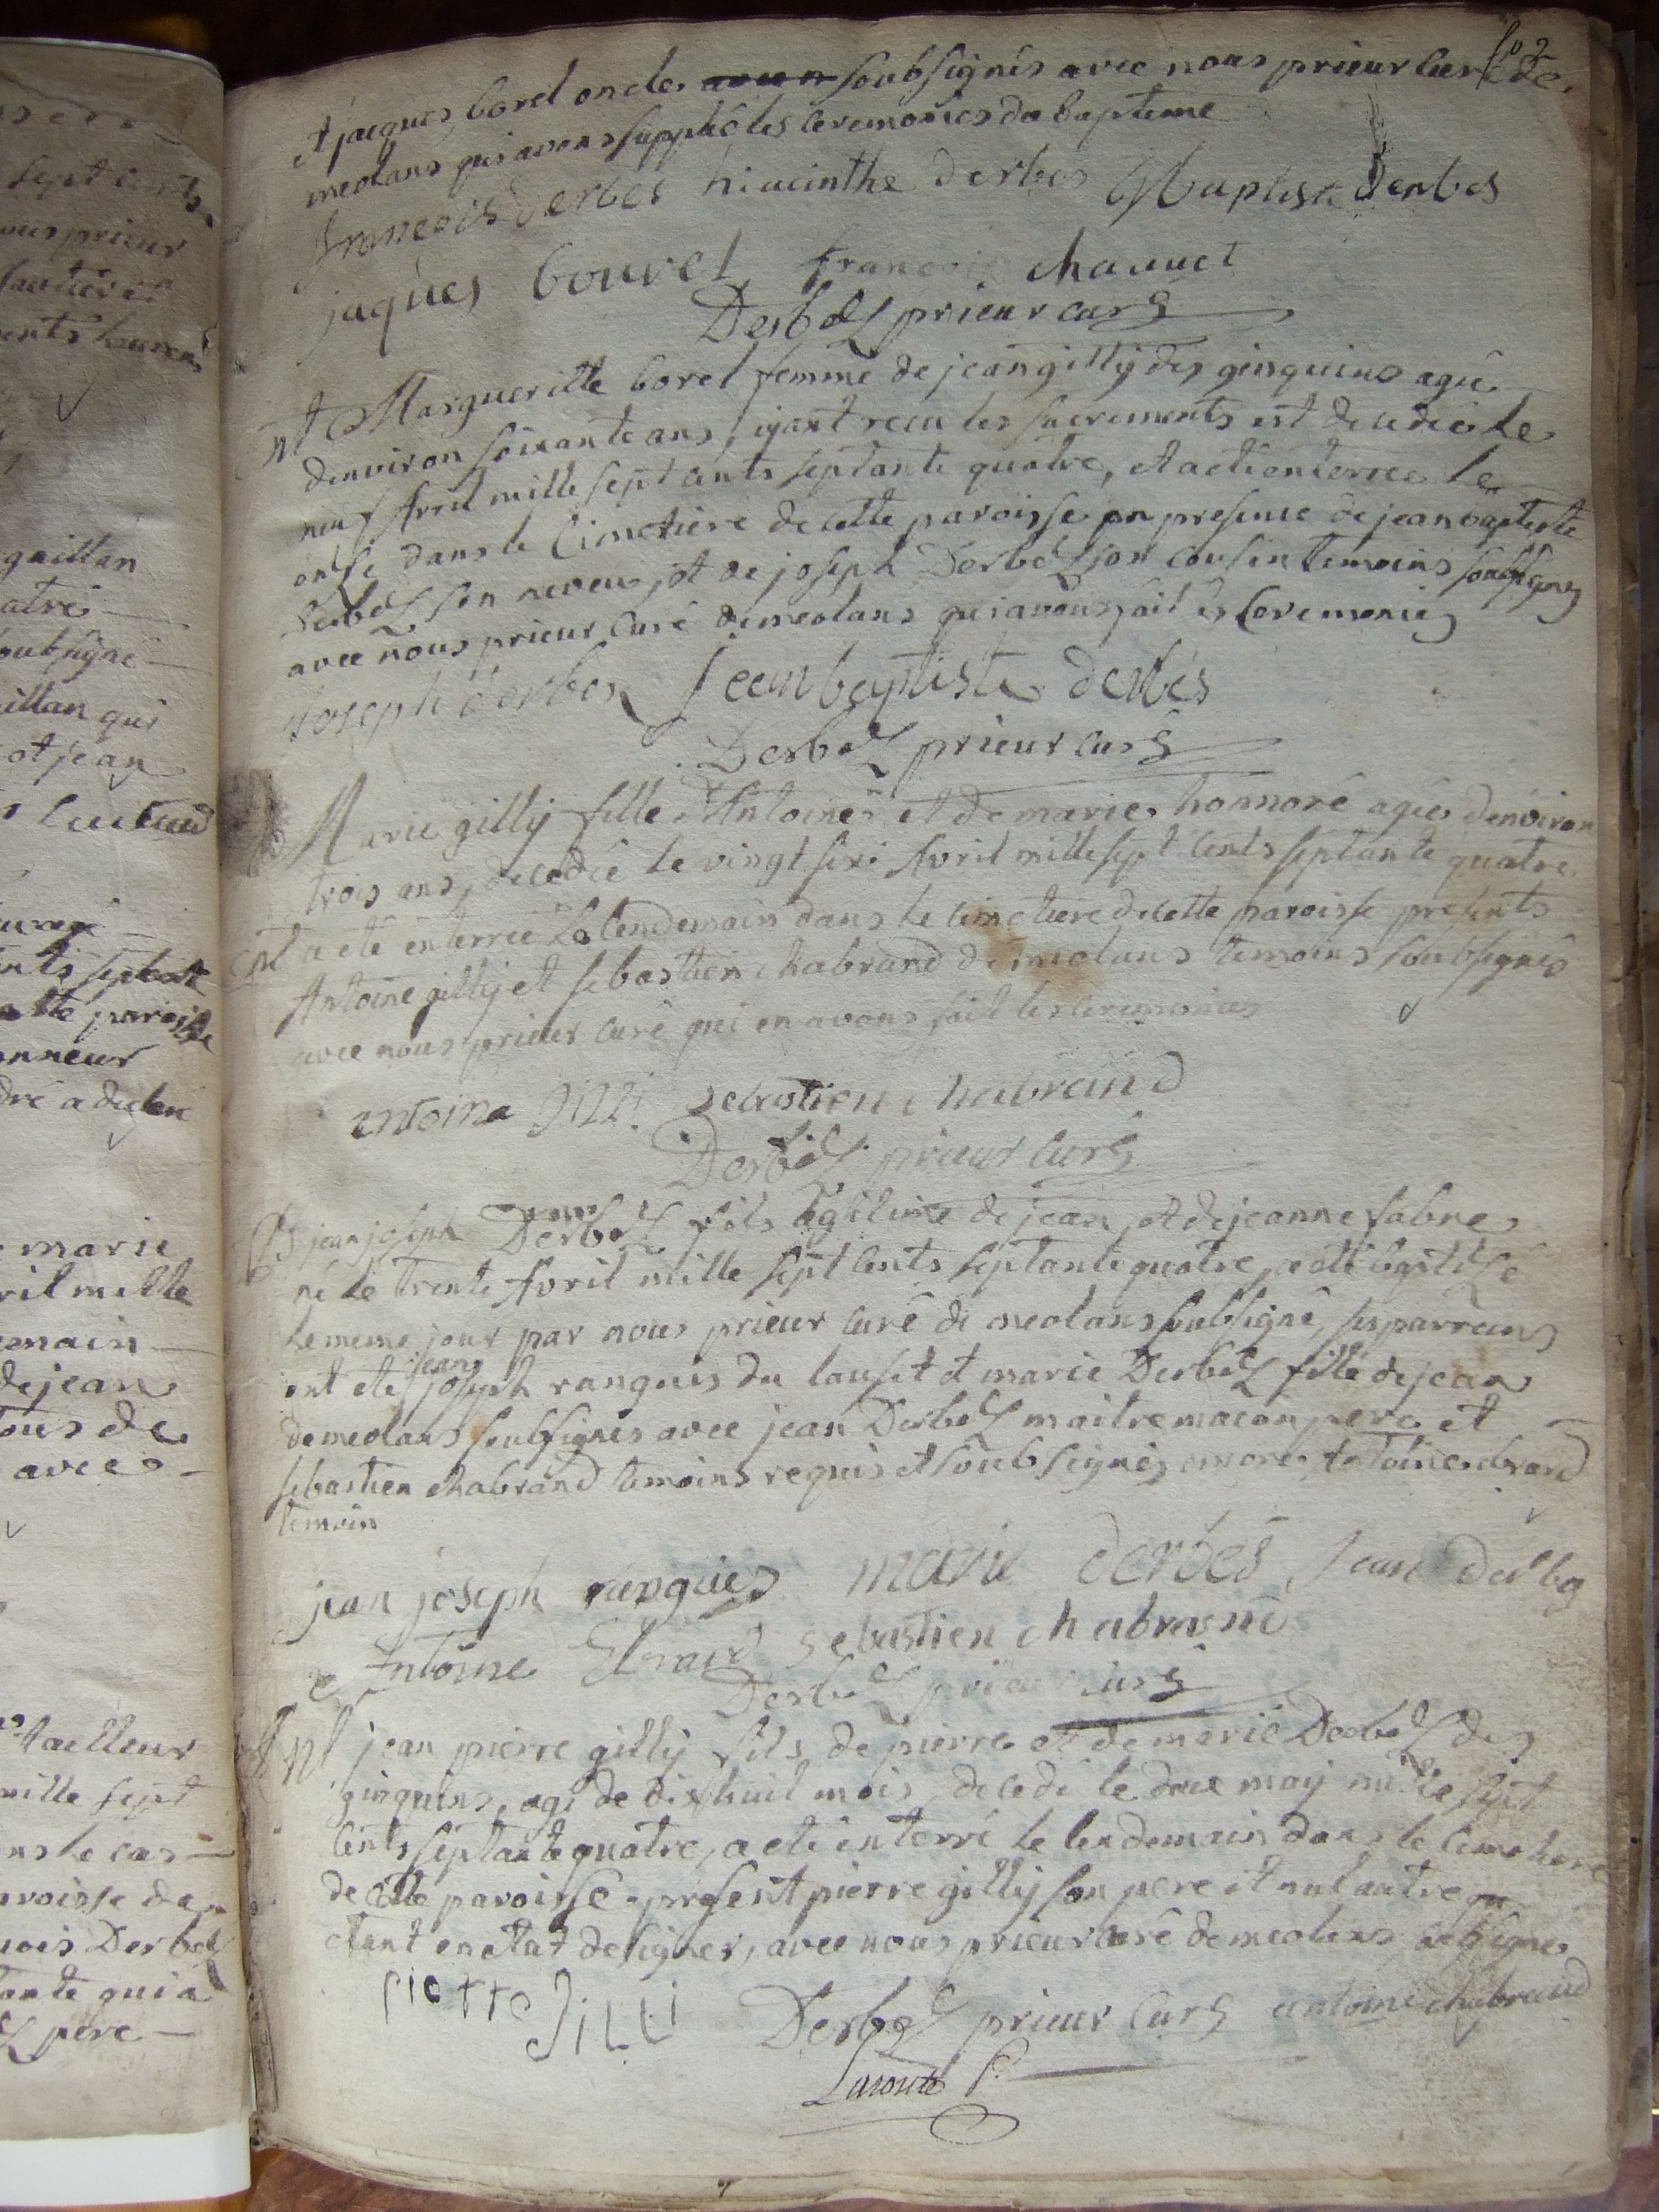 et jacques borel oncle soubsignés avec nous prieur curé de
meolans qui avons supplée les ceremonies du bapteme
françois derbes hiacinthe derbes Baptiste derbes
jaques bourel françois chauuet
Derbez prieur curé
nt Margueritte borel femme de jean gilly des ginquins agée
denviron soixante ans, ayant recu les sacrements est decedée le
neuf Avril mille sept cents septante quatre, et a eté enterree le
onse dans le Cimetiere de cette paroisse en presence de jean baptiste
Derbez son neveu, et de joseph Derbez son cousin temoins soubsignés
avec nous prieur curé de meolans qui avons fait les Ceremonies
Joseph derbes Jean baptiste derbés
Derbez prieur curé
Marie gilly fille d'Antoine et de marie honnoré agée denviron
trois ans, decedée le vingt sixe Avril mille sept cents septante quatre
a eté enterrée le lendemain dans le cimetiere de cette paroisse presents
Antoine gilly et sebastien chabrand de meolans temoins soubsignés
avec nous prieur curé qui en avons fait les ceremonies
antoine gilli sebastien chabrand
Derbez prieur curé
jean joseph Derbez fils legitime de jean, et de jeanne fabre
né le trente Avril mille sept cents septante quatre, a eté baptisé
le meme jour par nous prieur curé de meolans soubsigné, ses parreins
ont eté jean joseph ranguis du lauset et marie Derbez fille de jean
de meolans soubsignés avec jean Derbez maitre macon pere et
sebastien chabrand temoins requis et soubsignés encore Antoine ebrard
temoin
jean joseph rangues marie derbés Jean derbes
Antoine Ebrard sebastien chabrand
Derbez prieur curé
nt jean pierre gilly fils de pierre et de marie Derbez des
ginquins, agé de dix huit mois, decedé le deux may mille sept
cents septante quatre, a eté enterré le lendemain dans le cimetiere
de cette paroisse present pierre gilly son pere et nul autre
etant en etat de signer, avec nous prieur curé de meolans
pierre gilli Derbez prieur curé antoine chabraud